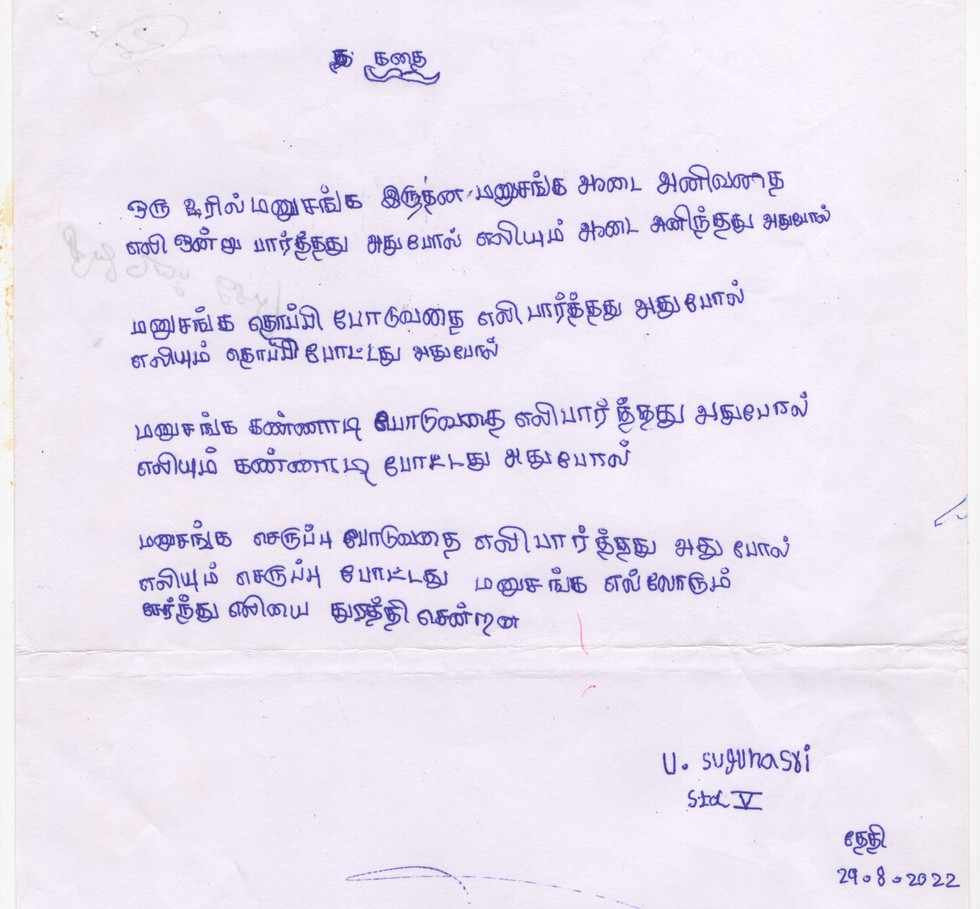 கதை
ஒரு ஊரில் மனுசங்க இருத்ன மனுசங்க அடை அனிவனத
எலி ஒன்று பார்த்தது அதுபோல் எலியும் அடை அனிந்தது அதுபோல்
மனுசங்க தொப்பி போடுவதை எலி பார்த்தது அதுபோல்
எலியும் தொப்பி போட்டது அதுபோல்
மனுசங்க கண்ணாடி போடுவதை எலிபார்த்தது அதுபோல்
எலியும் கண்ணாடி போட்டது அதுபோல்
மனுசங்க செருப்பு போடுவதை எலிபார்த்தது அது போல்
எலியும் செருப்பு போட்டது மனுசங்க எல்லோரும்
சேர்ந்து எலியை துரத்தி சென்றன
U. sugunasri
Std V
தேதி
29.8.2022